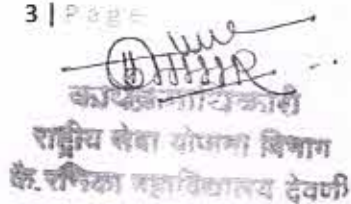 3 | Page
कार्यक्रमाधिकारी
राष्ट्रीय सेवा योजना विभाग
कै. रसिका महाविद्यालय देवणी